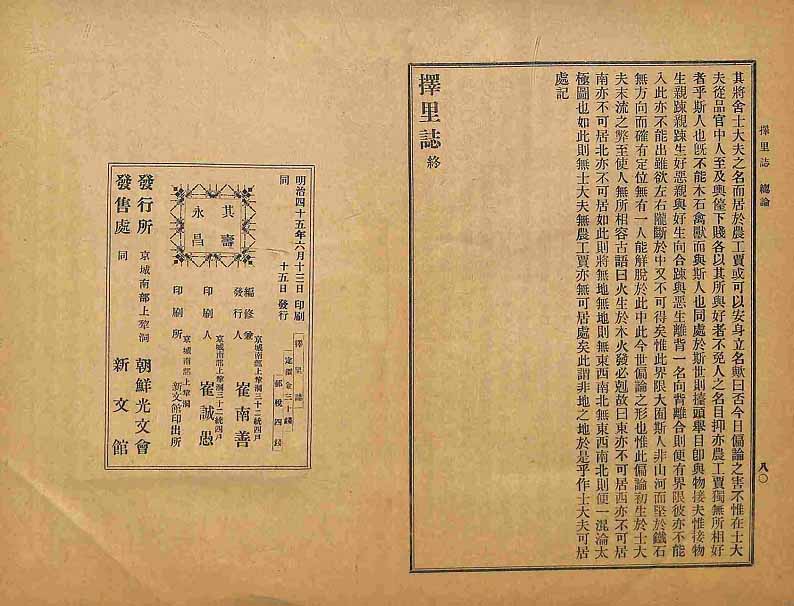 擇里誌　總論
八〇
其將舍士大夫之名而居於農工賈或可以安身立名歟曰否今日偏論之害不惟在士大
夫從品官中人至及輿儓下賤各以其所與好者不免人之名目抑亦農工賈獨無所相好
者乎斯人也旣不能木石禽獸而與斯人也同處於斯世則擡頭擧目卽與物接夫惟接物
生親踈親踈生好惡親與好生向合踈與惡生離背一名向背離合則便有界限彼亦不能
入此亦不能出雖欲左右隴斷於中又不可得矣惟此界限大囿斯人非山河而堅於鐵石
無方向而確有定位無有一人能解脫於此中此今世偏論之形也惟此偏論初生於士大
夫末流之弊至使人無所相容古語曰火生於木火發必剋故曰東亦不可居西亦不可居
南亦不可居北亦不可居如此則將無地無地則無東西南北無東西南北則便一混淪太
極圖也如此則無士大夫無農工賈亦無可居處矣此謂非地之地於是乎作士大夫可居
處記
擇里誌 終
明治四十五年六月十三日 印刷
同　十五日 發行
其壽
永昌
擇里誌
定價金三十錢
郵稅四錢
編修兼
發行人
京城南部上犂洞三十二統四戶
崔南善
印刷人
京城南部上犂洞三十二統四戶
崔誠愚
印刷所
京城南部上犂洞
新文館印出所
發行所 京城南部上犂洞 朝鮮光文會
發售處 同 新文館